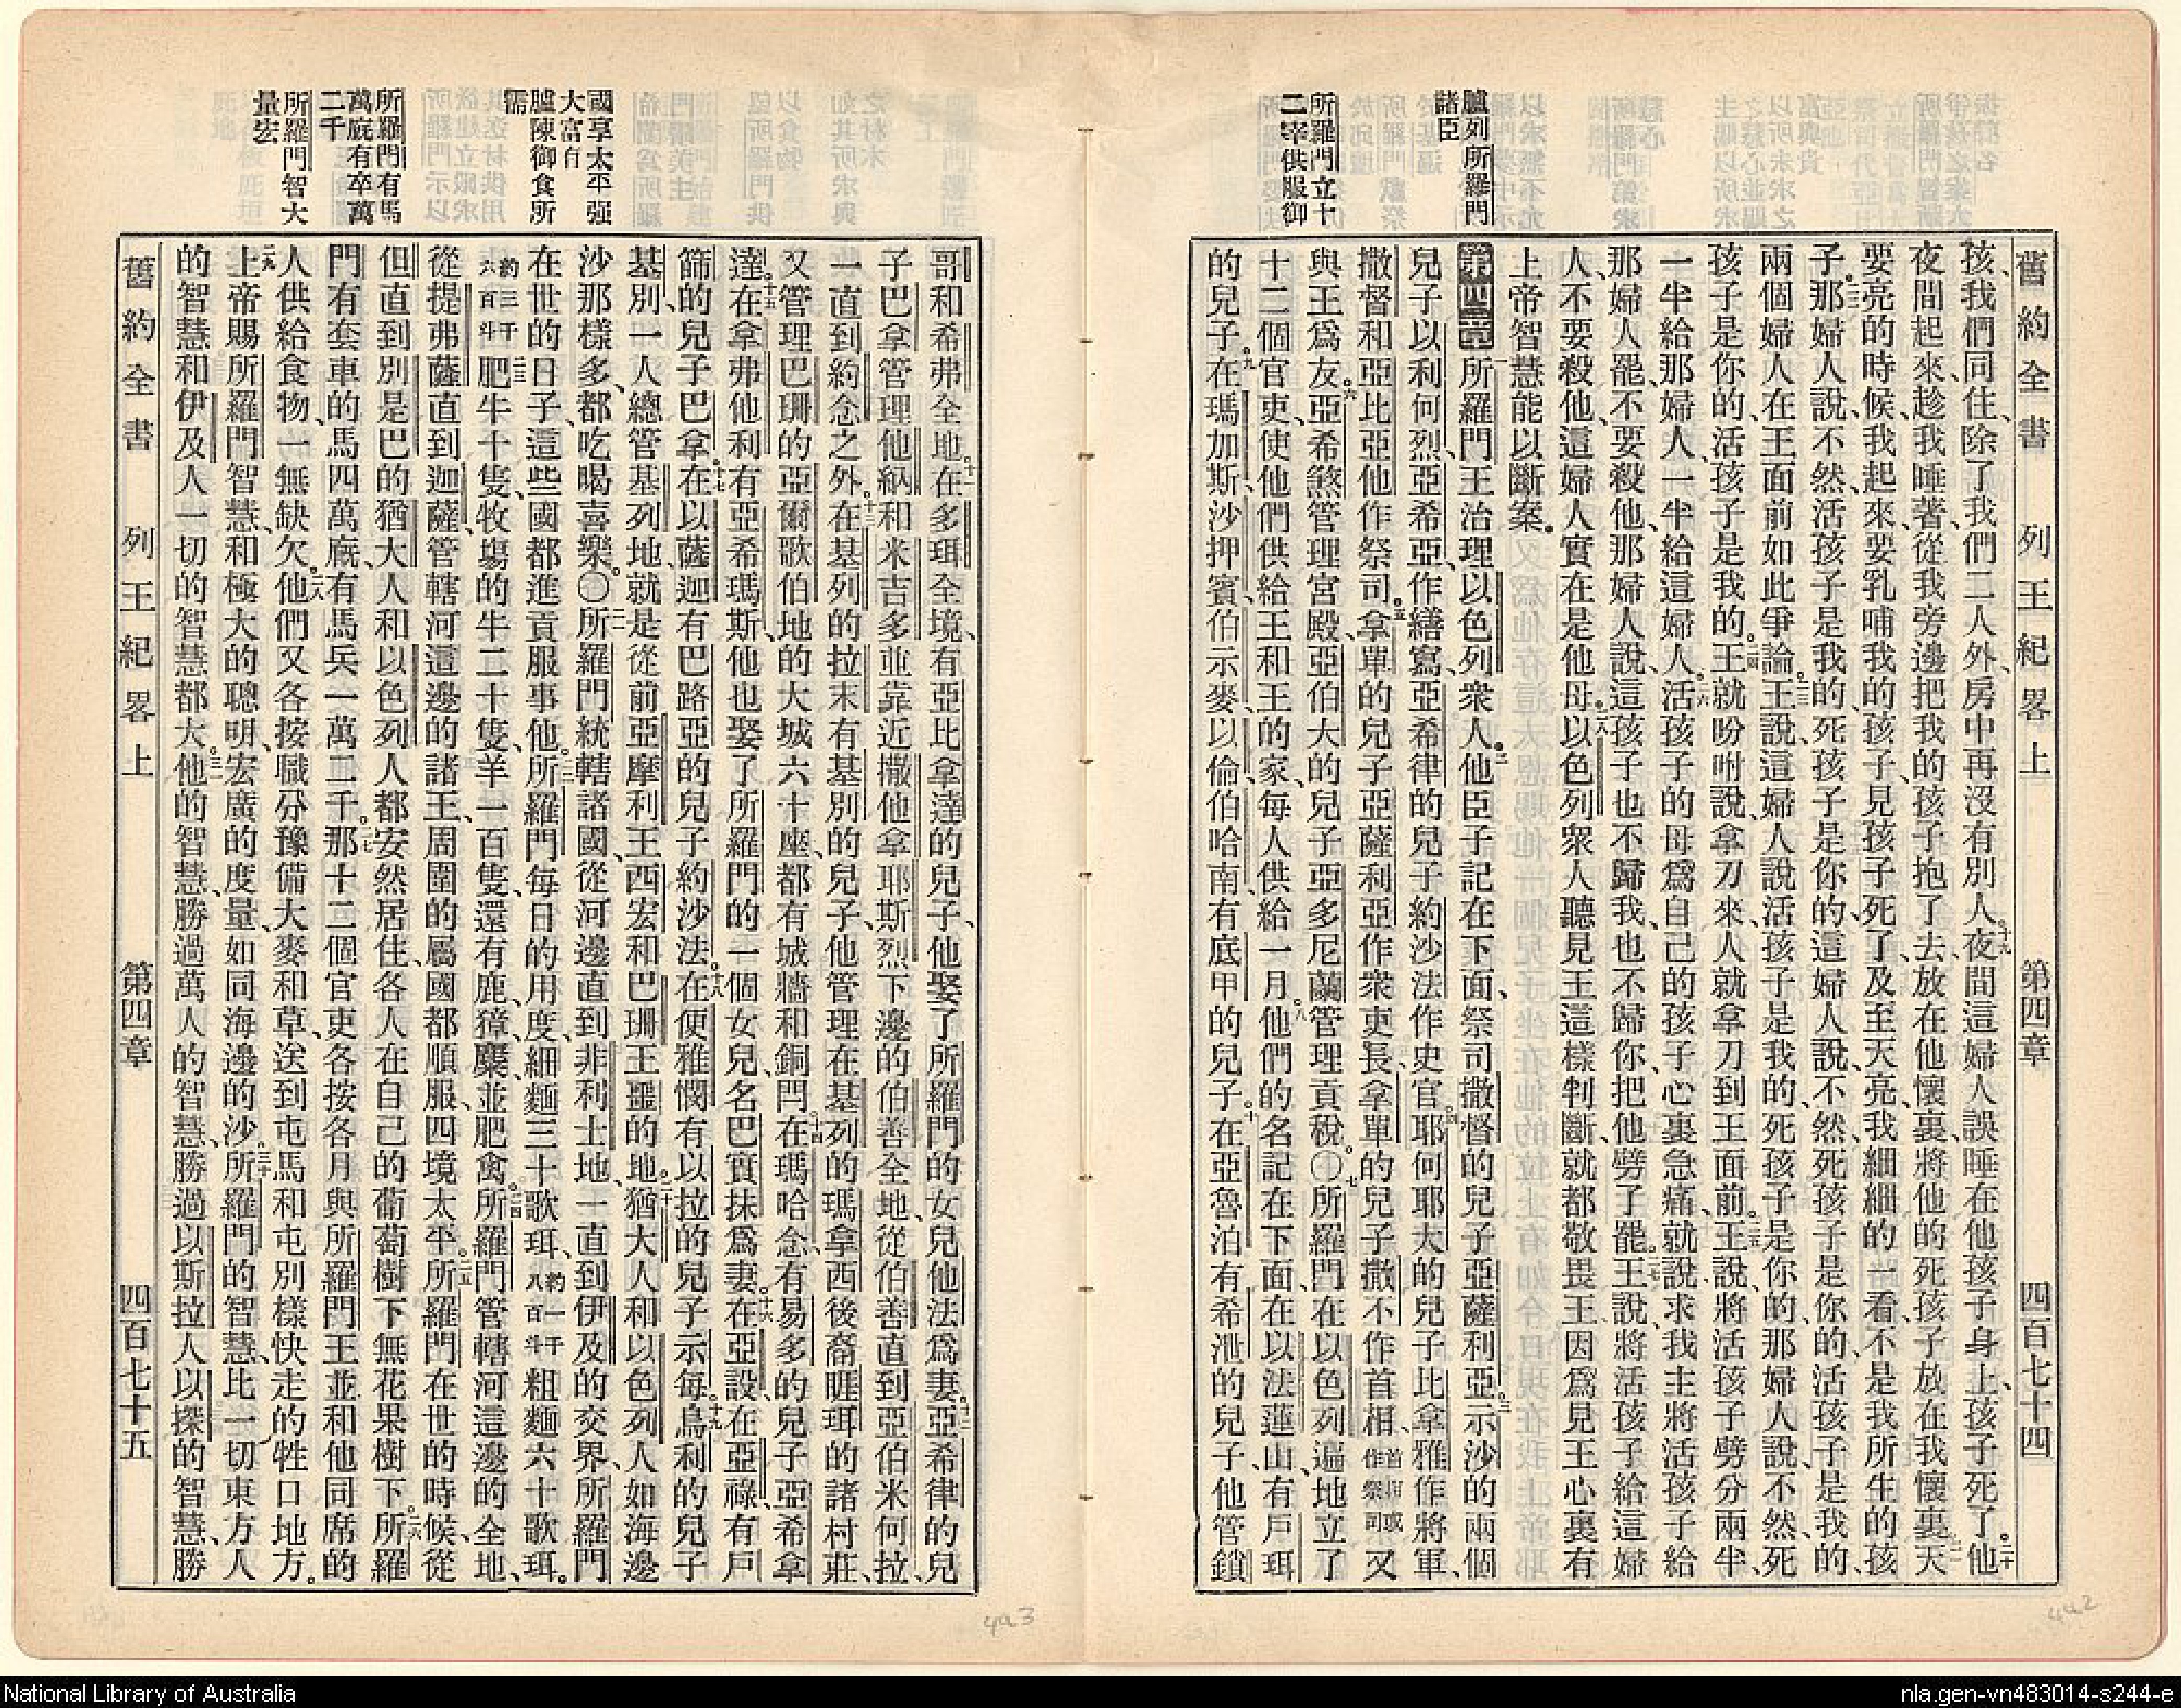 舊約全書 列王紀畧上 第四章 四百七十四
孩、我們同住、除了我們二人外、房中再沒有別人。十九夜間這婦人誤睡在他孩子身上、孩子死了。二十他
夜間起來、趁我睡著、從我旁邊把我的孩子抱了去、放在他懷裏、將他的死孩子放在我懷裏。二一天
要亮的時候、我起來、要乳哺我的孩子、見孩子死了、及至天亮、我細細的看、不是我所生的孩
子。二二那婦人說、不然、活孩子是我的、死孩子是你的、這婦人說、不然、死孩子是你的、活孩子是我的、
兩個婦人在王面前如此爭論。二三王說、這婦人說活孩子是我的、死孩子是你的、那婦人說、不然、死
孩子是你的、活孩子是我的。二四王就吩咐說、拿刀來、人就拿刀到王面前。二五王說、將活孩子劈分兩半、
一半給那婦人、一半給這婦人。二六活孩子的母爲自己的孩子心裏急痛、就說、求我主將活孩子給
那婦人罷、不要殺他、那婦人說、這孩子也不歸我、也不歸你、把他劈了罷。二七王說、將活孩子給這婦
人、不要殺他、這婦人實在是他母。二八以色列衆人聽見王這樣判斷、就都敬畏王、因爲見王心裏有
上帝智慧、能以斷案。
第四章 一所羅門王治理以色列衆人。二他臣子記在下面、祭司撒督的兒子亞薩利亞。三示沙的兩個
兒子以利何烈、亞希亞、作繕寫、亞希律的兒子約沙法作史官。四耶何耶大的兒子比拿雅作將軍、
撒督和亞比亞他作祭司。五拿單的兒子亞薩利亞作衆吏長、拿單的兒子撒不作首相、首相或作祭司又
與王爲友。六亞希煞管理宮殿、亞伯大的兒子亞多尼蘭管理貢稅。〇七所羅門在以色列遍地立了
十二個官吏、使他們供給王和王的家、每人供給一月。八他們的名記在下面、在以法蓮山、有戶珥
的兒子。九在瑪加斯、沙押賓、伯示麥、以倫伯哈南、有底甲的兒子。十在亞魯泊有希泄的兒子、他管鎖
臚列所羅門
諸臣
所羅門立十
二宰供服御
哥和希弗全地。十一在多珥全境、有亞比拿達的兒子、他娶了所羅門的女兒他法爲妻。十二亞希律的兒
子巴拿管理他納和米吉多並靠近撒他拿耶斯烈下邊的伯善全地、從伯善直到亞伯米何拉、
一直到約念之外。十三在基列的拉末有基別的兒子、他管理在基列的瑪拿西後裔睚珥的諸村莊、
又管理巴珊的亞爾歌伯地的大城六十座、都有城牆和銅閂。十四在瑪哈念、有易多的兒子亞希拿
達。十五在拿弗他利有亞希瑪斯、他也娶了所羅門的一個女兒名巴實抹爲妻。十六在亞設、在亞祿、有戶
篩的兒子巴拿。十七在以薩迦有巴路亞的兒子約沙法。十八在便雅憫有以拉的兒子示每。十九烏利的兒子
基別、一人總管基列地、就是從前亞摩利王西宏和巴珊王噩的地。二十猶大人和以色列人如海邊
沙那樣多、都吃喝喜樂。〇二一所羅門統轄諸國、從河邊直到非利士地、一直到伊及的交界、所羅門
在世的日子、這些國都進貢服事他。二二所羅門每日的用度、細麵三十歌珥、約一千八百斗粗麵六十歌珥。
約三千六百斗二三肥牛十隻、牧塲的牛二十隻、羊一百隻、還有鹿、獐、麋、並肥禽。二四所羅門管轄河這邊的全地、
從提弗薩直到迦薩、管轄河這邊的諸王、周圍的屬國都順服、四境太平。二五所羅門在世的時候、從
但直到別是巴的猶大人和以色列人都安然居住、各人在自己的葡萄樹下無花果樹下。二六所羅
門有套車的馬四萬廐、有馬兵一萬二千。二七那十二個官吏、各按各月與所羅門王並和他同席的
人供給食物、一無缺欠。二八他們又各按職分豫備大麥和草、送到屯馬和屯別樣快走的牲口地方。
二九上帝賜所羅門智慧、和極大的聰明、宏廣的度量、如同海邊的沙。三十所羅門的智慧、比一切東方人
的智慧和伊及人一切的智慧都大。三一他的智慧、勝過萬人的智慧、勝過以斯拉人以探的智慧、勝
舊約全書 列王紀畧上 第四章 四百七十五
國享太平强
大富有
臚陳御食所
需
所羅門有馬
萬廐有卒萬
二千
所羅門智大
量宏
493
492
National Library of Australia
nla.gen-vn483014-s244-e